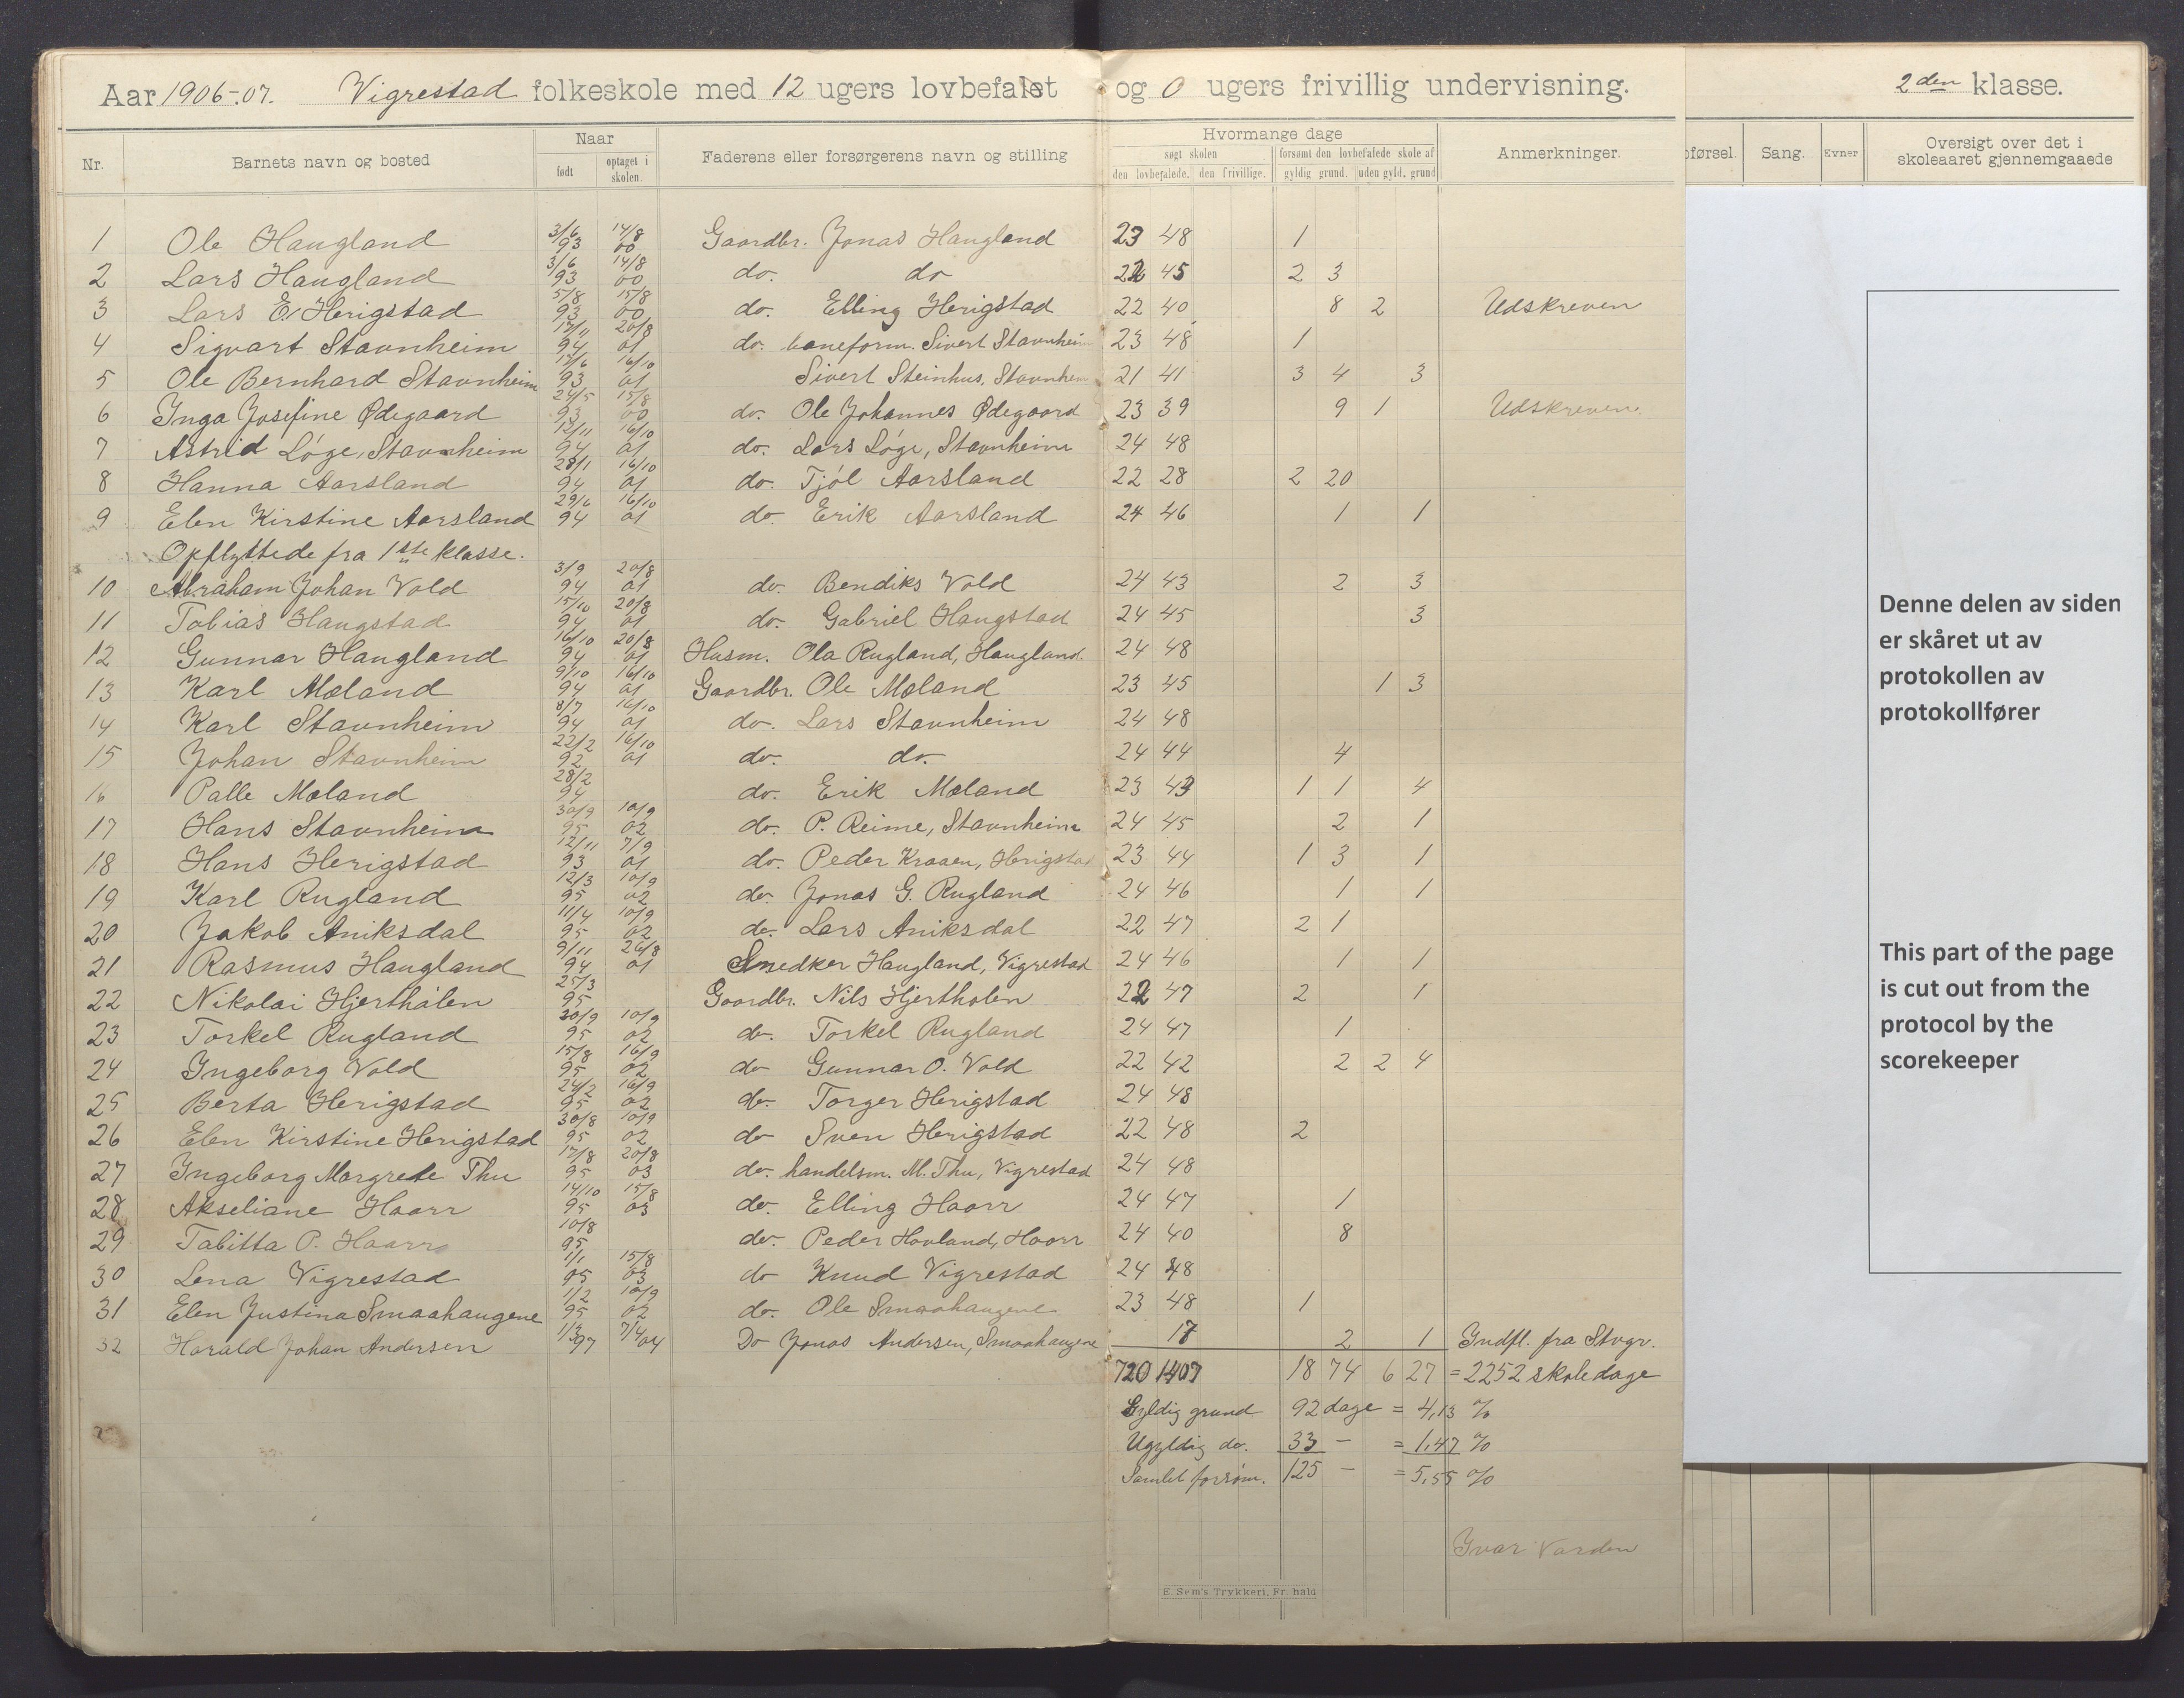 Aar 1906-07. Vigrestad folkeskole med 12 ugers lovbefalet og 0 ugers frivillig undervisning. 2den klasse.
Nr. Barnets navn og bosted Naar født optaget i skolen. Faderens eller forsørgerens navn og stilling Hvormange dage søgt skolen den lovbefalede. den frivillige. forsømt den lovbefalede skole af gyldig grund. uden gyld. grund Anmerkninger. førsel. Sang. Evner Oversigt over det i skoleaaret gjennemgaaede
1 Ole Haugland 3/6 93 14/8 00 Gaardbr. Jonas Haugland 23 48 1
2 Lars Haugland 3/6 93 14/8 00 do. do 22 45 2 3
3 Lars E. Herigstad 5/8 93 15/8 00 do. Elling Herigstad 22 40 8 2 Udskreven
4 Sigvart Stavnheim 17/11 94 20/8 01 do. baneform. Sivert Stavnheim 23 48 1
5 Ole Bernhard Stavnheim 17/6 93 16/10 01 Sivert Steinhus, Stavnheim 21 41 3 4 3
6 Inga Josefine Ødegaard 24/5 93 15/8 00 do. Ole Johannes Ødegaard 23 39 9 1 Udskreven.
7 Astrid Løge, Stavnheim 12/11 94 16/10 01 do. Lars Løge, Stavnheim 24 48
8 Hanna Aarsland 28/1 94 16/10 01 do. Tjøl Aarsland 22 28 2 20
9 Elen Kirstine Aarsland 29/6 94 16/10 01 do. Erik Aarsland 24 46 1 1
Opflyttede fra 1ste klasse.
10 Abraham Johan Vold 3/9 94 20/8 01 do. Bendiks Vold 24 43 2 3
11 Tobias Haugstad 15/10 94 20/8 01 do. Gabriel Haugstad 24 45 3
12 Gunnar Haugland 16/10 94 20/8 01 Husm. Ola Rugland, Haugland 24 48
13 Karl Mæland 9/10 94 16/10 01 Gaardbr. Ole Mæland 23 45 1 3
14 Karl Stavnheim 8/7 94 16/10 01 do. Lars Stavnheim 24 48
15 Johan Stavnheim 22/2 92 16/10 01 do. do. 24 44 4
16 Palle Mæland 28/2 94 do. Erik Mæland 23 43 1 1 4
17 Hans Stavnheim 30/9 95 10/9 02 do. P. Reime, Stavnheim 24 45 2 1
18 Hans Herigstad 12/11 93 7/9 01 do. Peder Kraaen, Herigstad 23 44 1 3 1
19 Karl Rugland 12/3 95 10/9 02 do. Jonas G. Rugland 24 46 1 1
20 Jakob Aniksdal 11/4 95 10/9 02 do. Lars Aniksdal 22 47 2 1
21 Rasmus Haugland 9/11 94 26/8 01 Snedker Haugland, Vigrestad 24 46 1 1
22 Nikolai Hjerthølen 25/3 95 Gaardbr. Nils Hjertholen 22 47 2 1
23 Torkel Rugland 20/9 95 10/9 02 do. Torkel Rugland 24 47 1
24 Ingeborg Vold 15/8 95 16/9 02 do Gunnar O. Vold 22 42 2 2 4
25 Berta Herigstad 24/2 95 16/9 02 do. Torger Herigstad 24 48
26 Elen Kirstine Herigstad 30/8 95 10/9 02 do Sven Herigstad 22 48 2
27 Ingeborg Margrete Thu 17/8 95 20/8 03 do. handelsm. M. Thu, Vigrestad 24 48
28 Akseliane Haarr 14/10 95 15/8 03 do. Elling Haarr 24 47 1
29 Tabitta P. Haarr 10/8 95 do. Peder Hovland, Haarr 24 40 8
30 Lena Vigrestad 1/1 95 15/8 03 do Knud Vigrestad 24 48
31 Elen Justina Smaahaugene 1/2 95 10/9 02 do. Ole Smaahaugene 23 48 1
32 Harald Johan Andersen 1/3 97 7/4 04 Do Jonas Andersen, Smaahaugene 17 2 1 Indfl. fra Stvgr.
720 1407 18 74 6 27 = 2252 skoledage
Gyldig grund 92 dage = 4,13 %
Ugyldig do. 33 - = 1,47 %
Samlet forsøm. 125 - = 5,55 %
Ivar Varden
E. Sem's Trykkeri, Fr. hald
Denne delen av siden
er skåret ut av
protokollen av
protokollfører
This part of the page
is cut out from the
protocol by the
scorekeeper